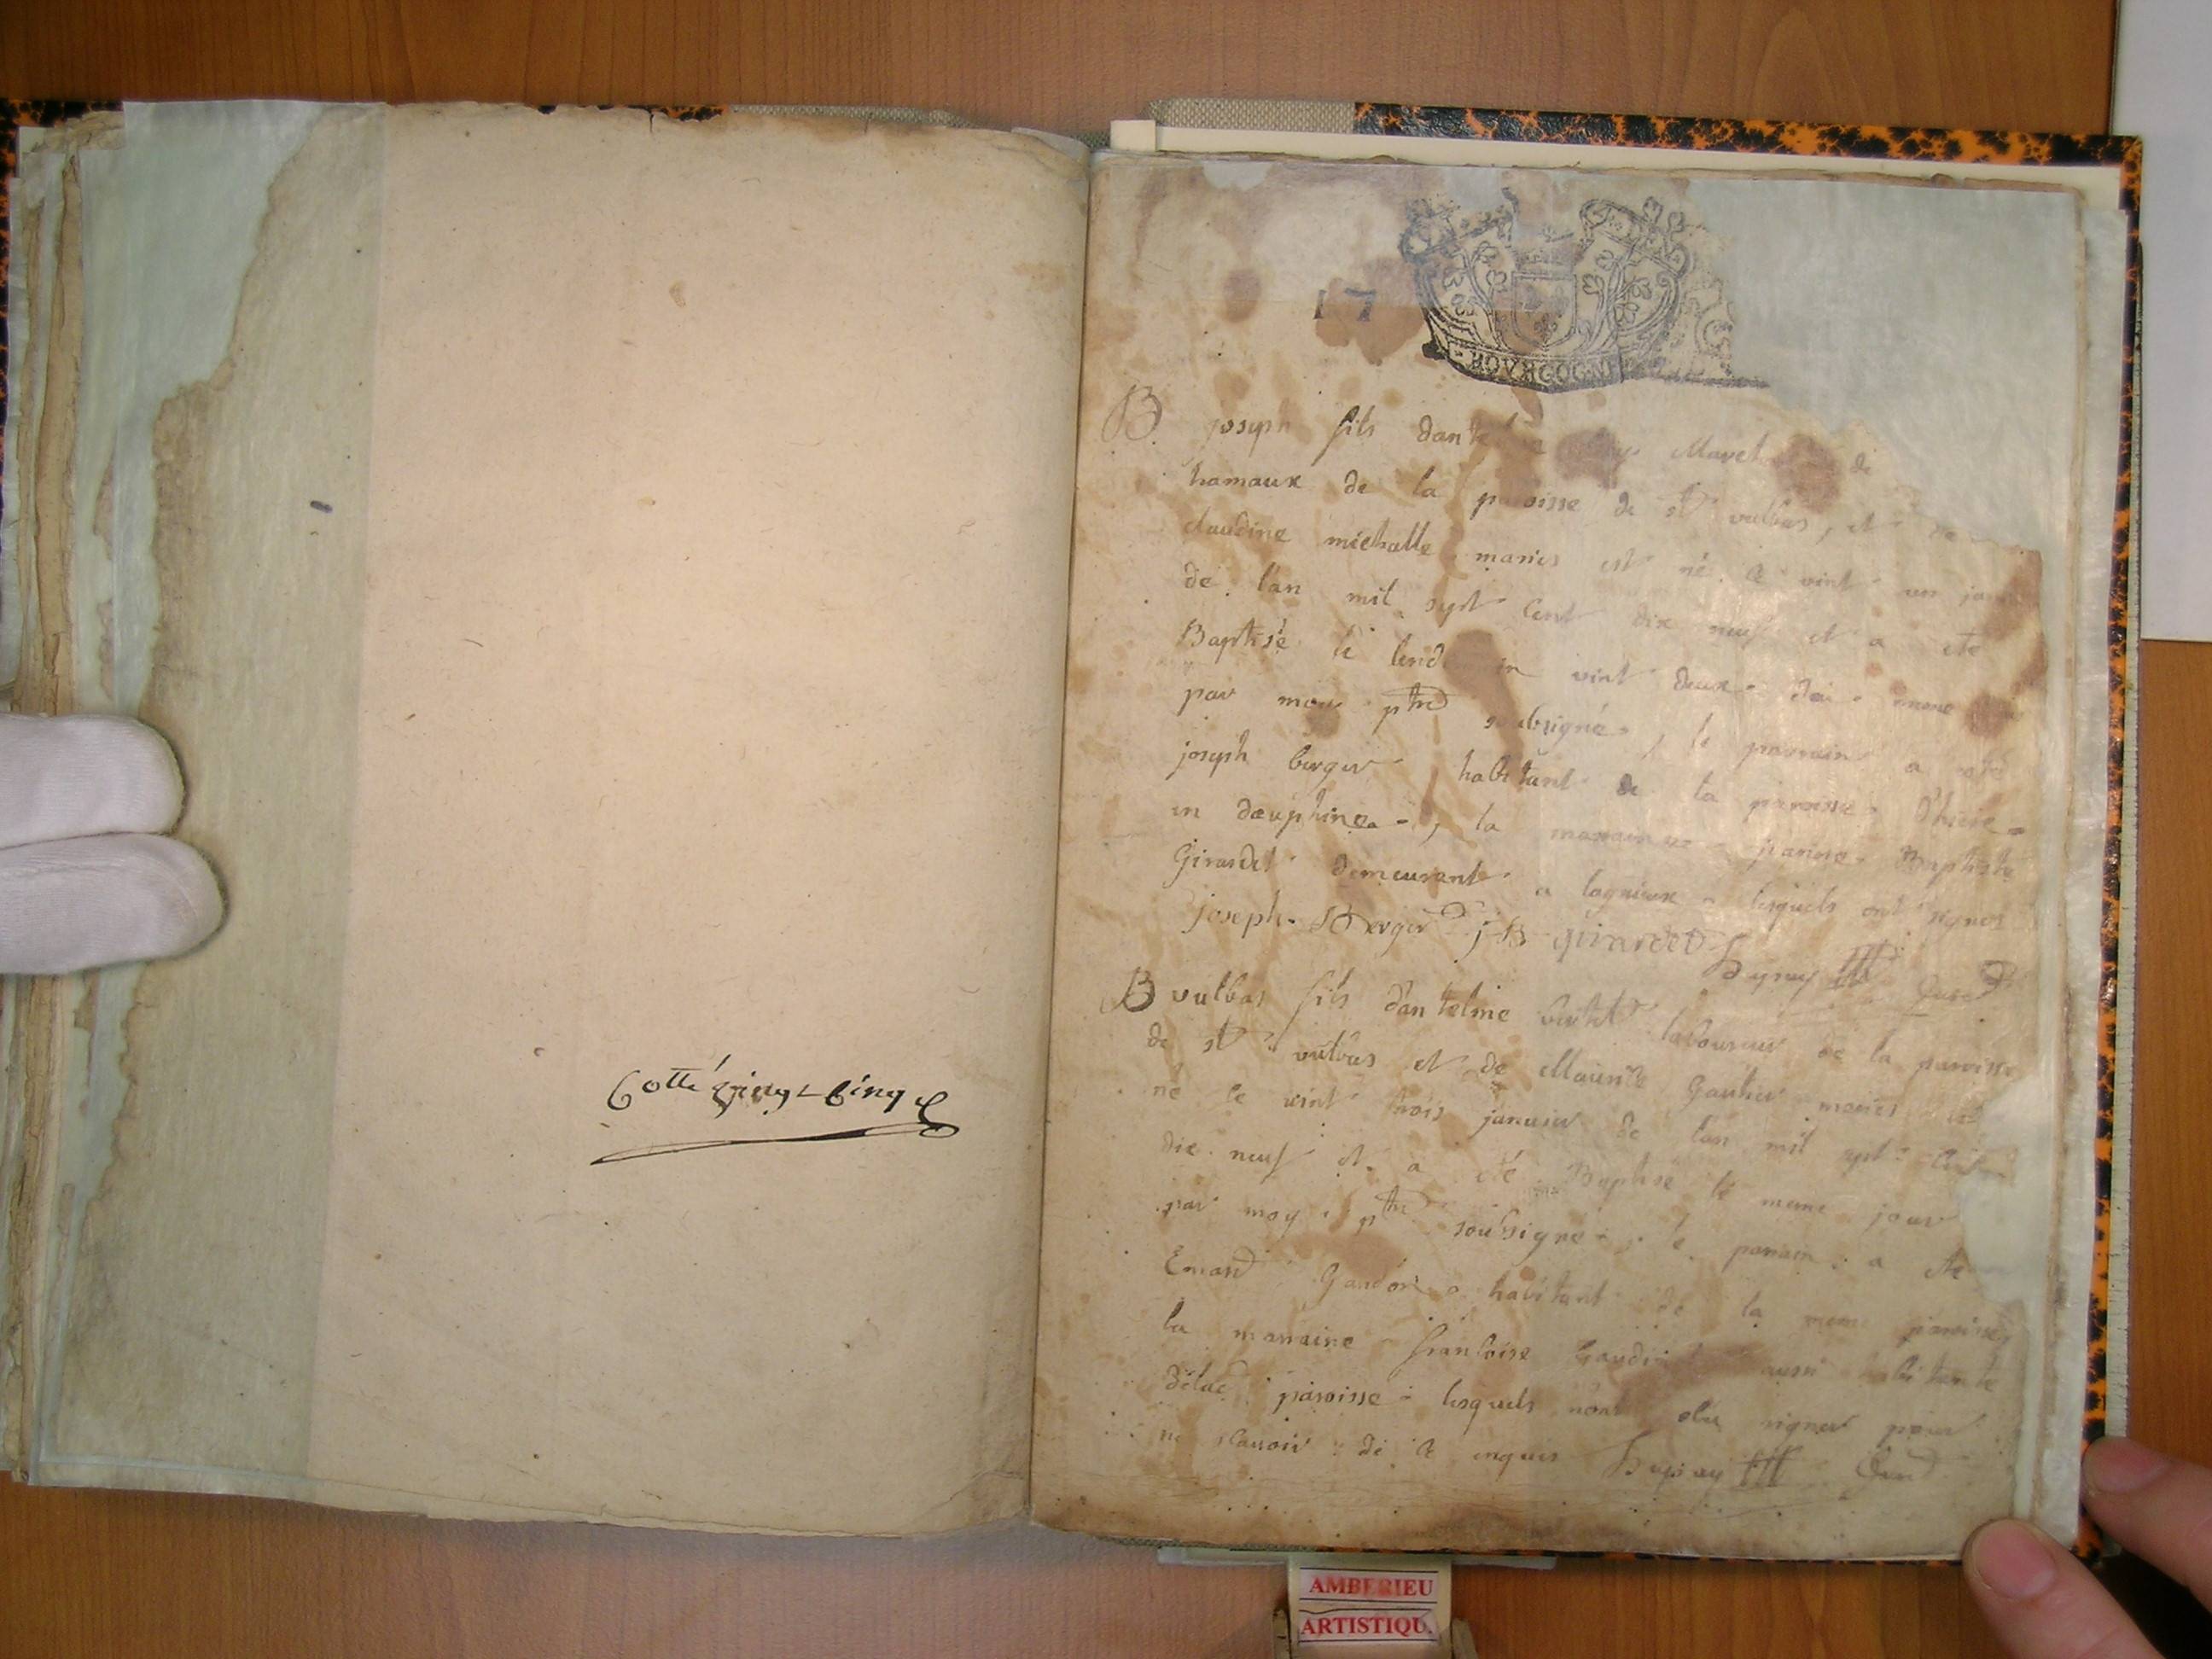 Cotté Vingt Cinq
17
BOVRGOGNE
B joseph fils dantelme Mavet de
hamaux de la paroisse de st vulbas, et
claudine michalle mariés est né le vint un janv
de lan mil sept Cent dix neuf et a ete
Baptisé le lendemain vint deux
par moy ptre soubsigné, le parrain a ete
joseph berger habitant de la paroisse d'hiere
en dauphinea, la marraine janne Baptiste
Girardet demeurant a lagnieux lesquels ont signes
joseph Berger j B girardet Curé
B vulbas fils dantelme laboureur de la paroisse
de st vulbas et de Maurite Gautier mariés est
né le vint trois janvier de lan mil sept Cent
dix neuf et a été Baptisé le meme jour
par moy ptre soubsigné, le parrain a ete
Emard Gaudon habitant de la meme paroisse
la marraine francoise aussi habitante
délad paroisse lesquels nont signer pour
ne scavoir de ce enquis Curé
AMBERIEU
ARTISTIQU